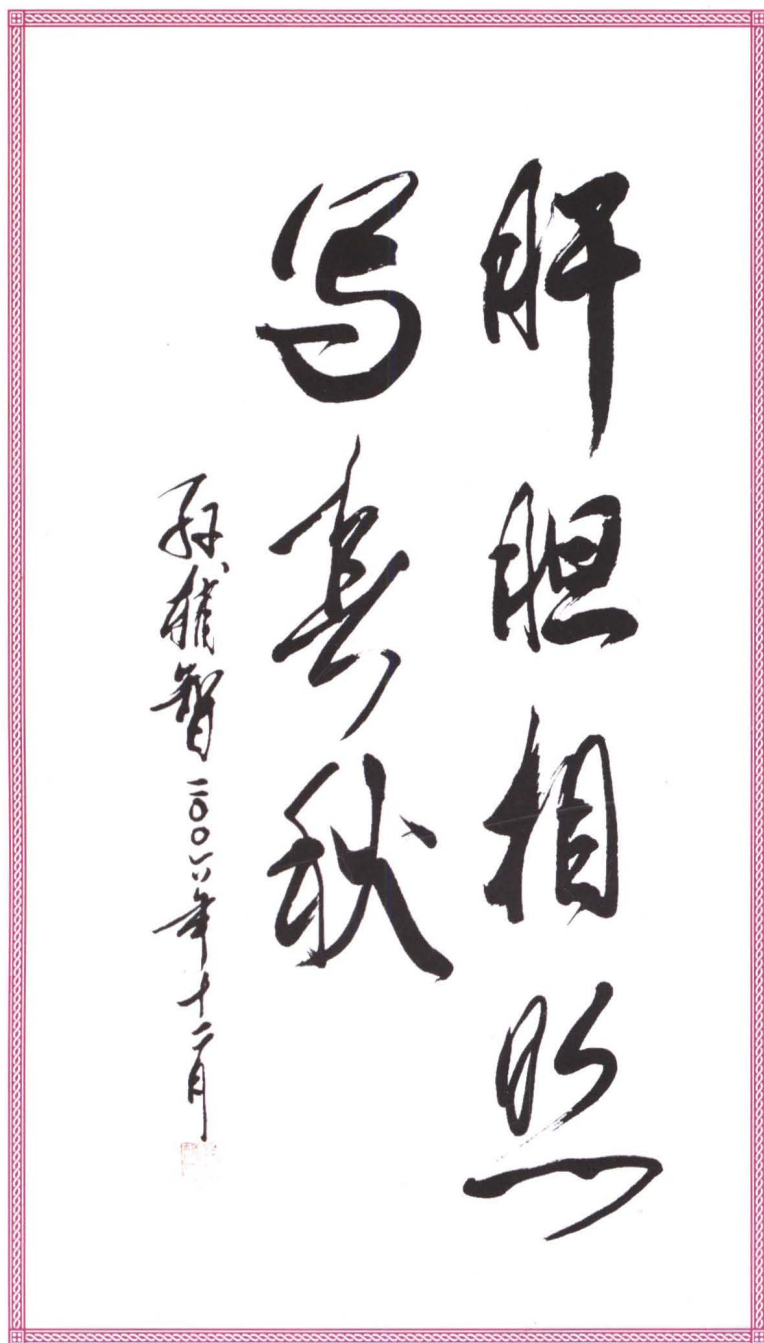 肝胆相照
写春秋
孙辅智 二〇〇六年十二月